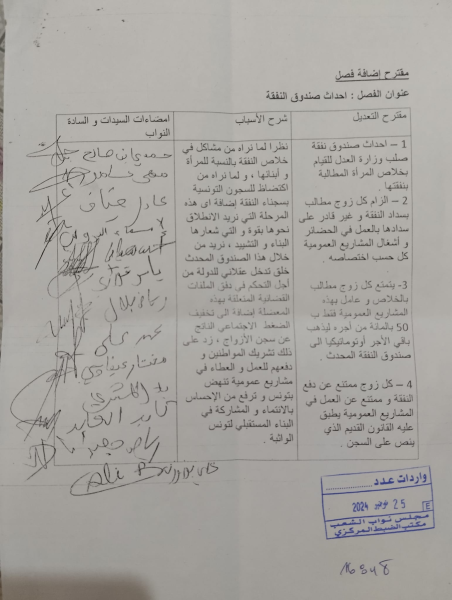 مقترح إضافة فصل
عنوان الفصل : احداث صندوق النفقة
مقترح التعديل
1 – احداث صندوق نفقة
صلب وزارة العدل للقيام
بخلاص المرأة المطالبة
بنفقتها .
2 – الزام كل زوج مطالب
بسداد النفقة و غير قادر على
سدادها بالعمل في الحضائر
و أشغال المشاريع العمومية
كل حسب اختصاصه .
3- يتمتع كل زوج مطالب
بالخلاص و عامل بهذه
المشاريع العمومية فقط ب
50 بالمائة من أجره ليذهب
باقي الأجر أوتوماتيكيا الى
صندوق النفقة المحدث .
4 – كل زوج ممتنع عن دفع
النفقة و ممتنع عن العمل في
المشاريع العمومية يطبق
عليه القانون القديم الذي
ينص على السجن .
شرح الأسباب
نظرا لما نراه من مشاكل في
خلاص النفقة بالنسبة للمرأة
و أبنائها ، و لما نراه من
اكتضاظ للسجون التونسية
بسجناء النفقة إضافة اى هذه
المرحلة التي نريد الانطلاق
نحوها بقوة و التي شعارها
البناء و التشييد ، نريد من
خلال هذا الصندوق المحدث
خلق تدخل عقلاني للدولة من
أجل التحكم في دفق الملفات
القضائية المتعلقة بهذه
المعضلة إضافة الى تخفيف
الضغط الاجتماعي الناتج
عن سجن الأزواج ، زد على
ذلك تشريك المواطنين و
دفعهم للعمل و العطاء في
مشاريع عمومية تنهض
بتونس و ترفع من الإحساس
بالانتماء و المشاركة في
البناء المستقبلي لتونس
الواثبة .
امضاءات السيدات و السادة
النواب
عادل ضياف
ياسر قراري
رياض بلال
محمد علي
مختار عيفاوي
واردات عدد
25 نوفمبر 2024
مجلس نواب الشعب
مكتب الضبط المركزي